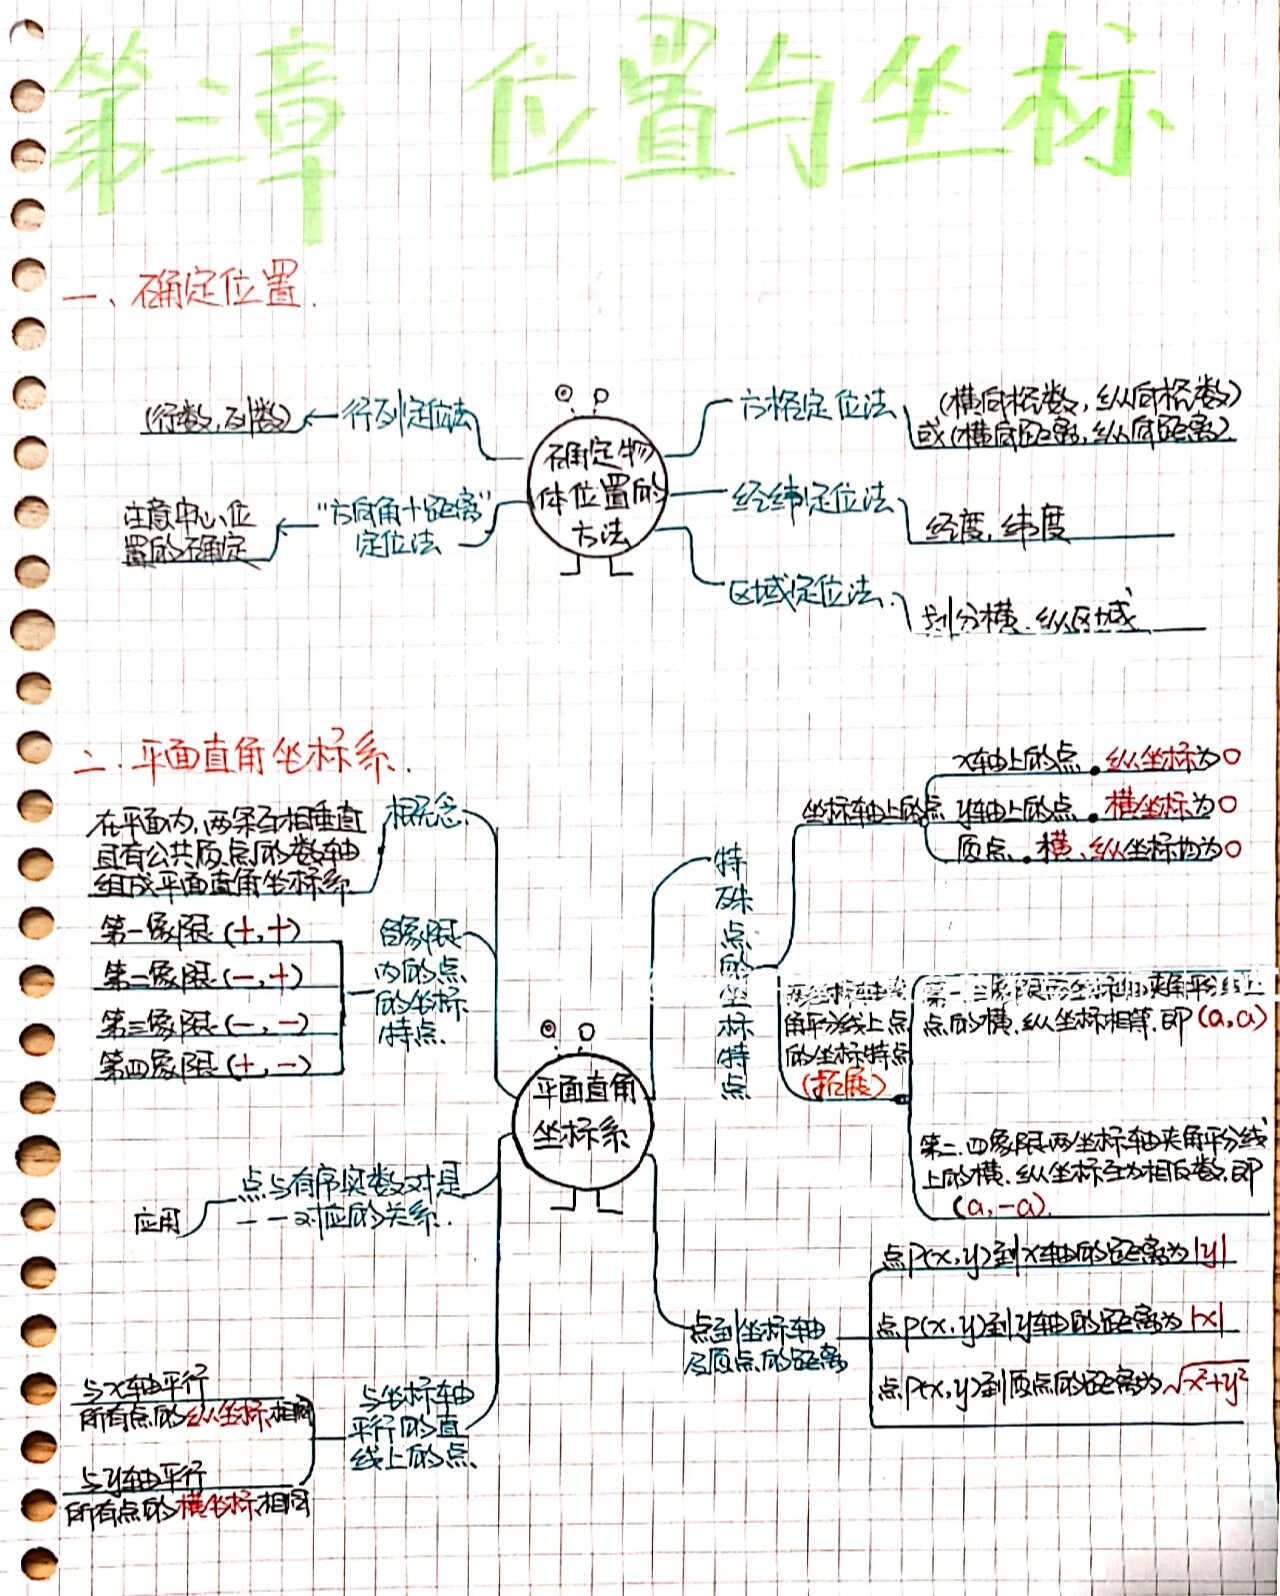 第三章 位置与坐标
一、确定位置.
确定物
体位置的
方法
行列定位法
(行数,列数)
"方向角+距离"
定位法
注意中心位
置的确定
方格定位法
(横向格数,纵向格数)
或(横向距离,纵向距离).
经纬定位法
经度,纬度
区域定位法.
划分横、纵区域
二、平面直角坐标系.
平面直角
坐标系
概念
在平面内,两条互相垂直
且有公共原点的数轴
组成平面直角坐标系
各象限
内的点
的坐标
特点
第一象限(+,+)
第二象限(-,+)
第三象限(-,-)
第四象限(+,-)
点与有序实数对是
一一对应的关系.
应用
与坐标轴
平行的直
线上的点
与x轴平行
所有点的纵坐标相同
与y轴平行
所有点的横坐标相同
特殊点的坐标特点
坐标轴上的点
x轴上的点.纵坐标为0
y轴上的点.横坐标为0
原点.横、纵坐标均为0
两坐标轴夹
角平分线上点
的坐标特点
(拓展)
第一三象限两坐标轴夹角平分线上
点的横、纵坐标相等.即(a,a)
第二.四象限两坐标轴夹角平分线
上的横、纵坐标互为相反数.即
(a,-a).
点到坐标轴
及原点的距离
点P(x,y)到x轴的距离为|y|
点P(x,y)到y轴的距离为|x|
点P(x,y)到原点的距离为√x²+y²